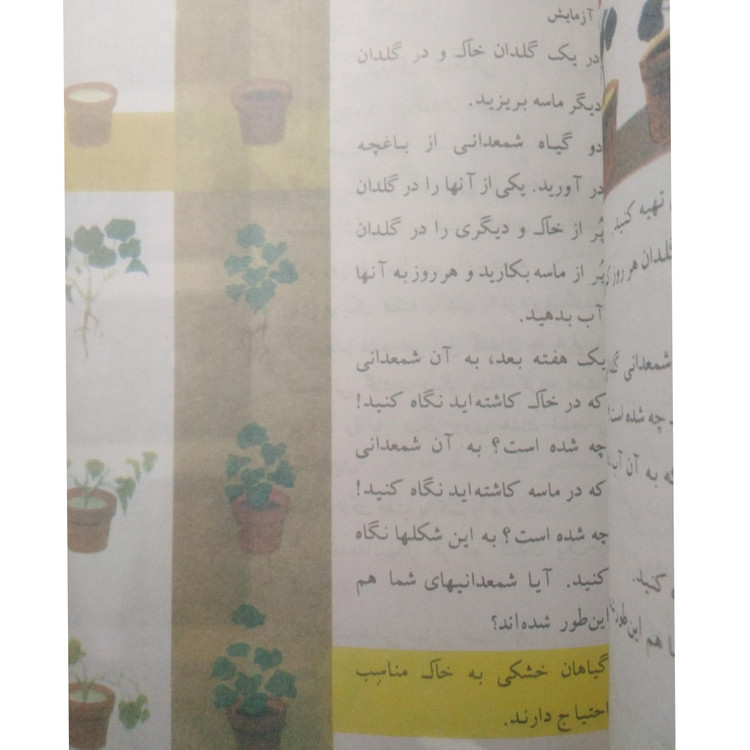 آزمایش
در یک گلدان خاک و در گلدان
دیگر ماسه بریزید.
دو گیاه شمعدانی از باغچه
در آورید. یکی از آنها را در گلدان
پُر از خاک و دیگری را در گلدان
پُر از ماسه بکارید و هر روز به آنها
آب بدهید.
یک هفته بعد، به آن شمعدانی
که در خاک کاشته‌اید نگاه کنید!
چه شده است؟ به آن شمعدانی
که در ماسه کاشته‌اید نگاه کنید!
چه شده است؟ به این شکلها نگاه
کنید. آیا شمعدانیهای شما هم
این‌طور شده‌اند؟
گیاهان خشکی به خاک مناسب
احتیاج دارند.
تهیه کنید.
گلدان هر روز
شمعدانی
چه شده است
که به آن آب
هم این‌طور